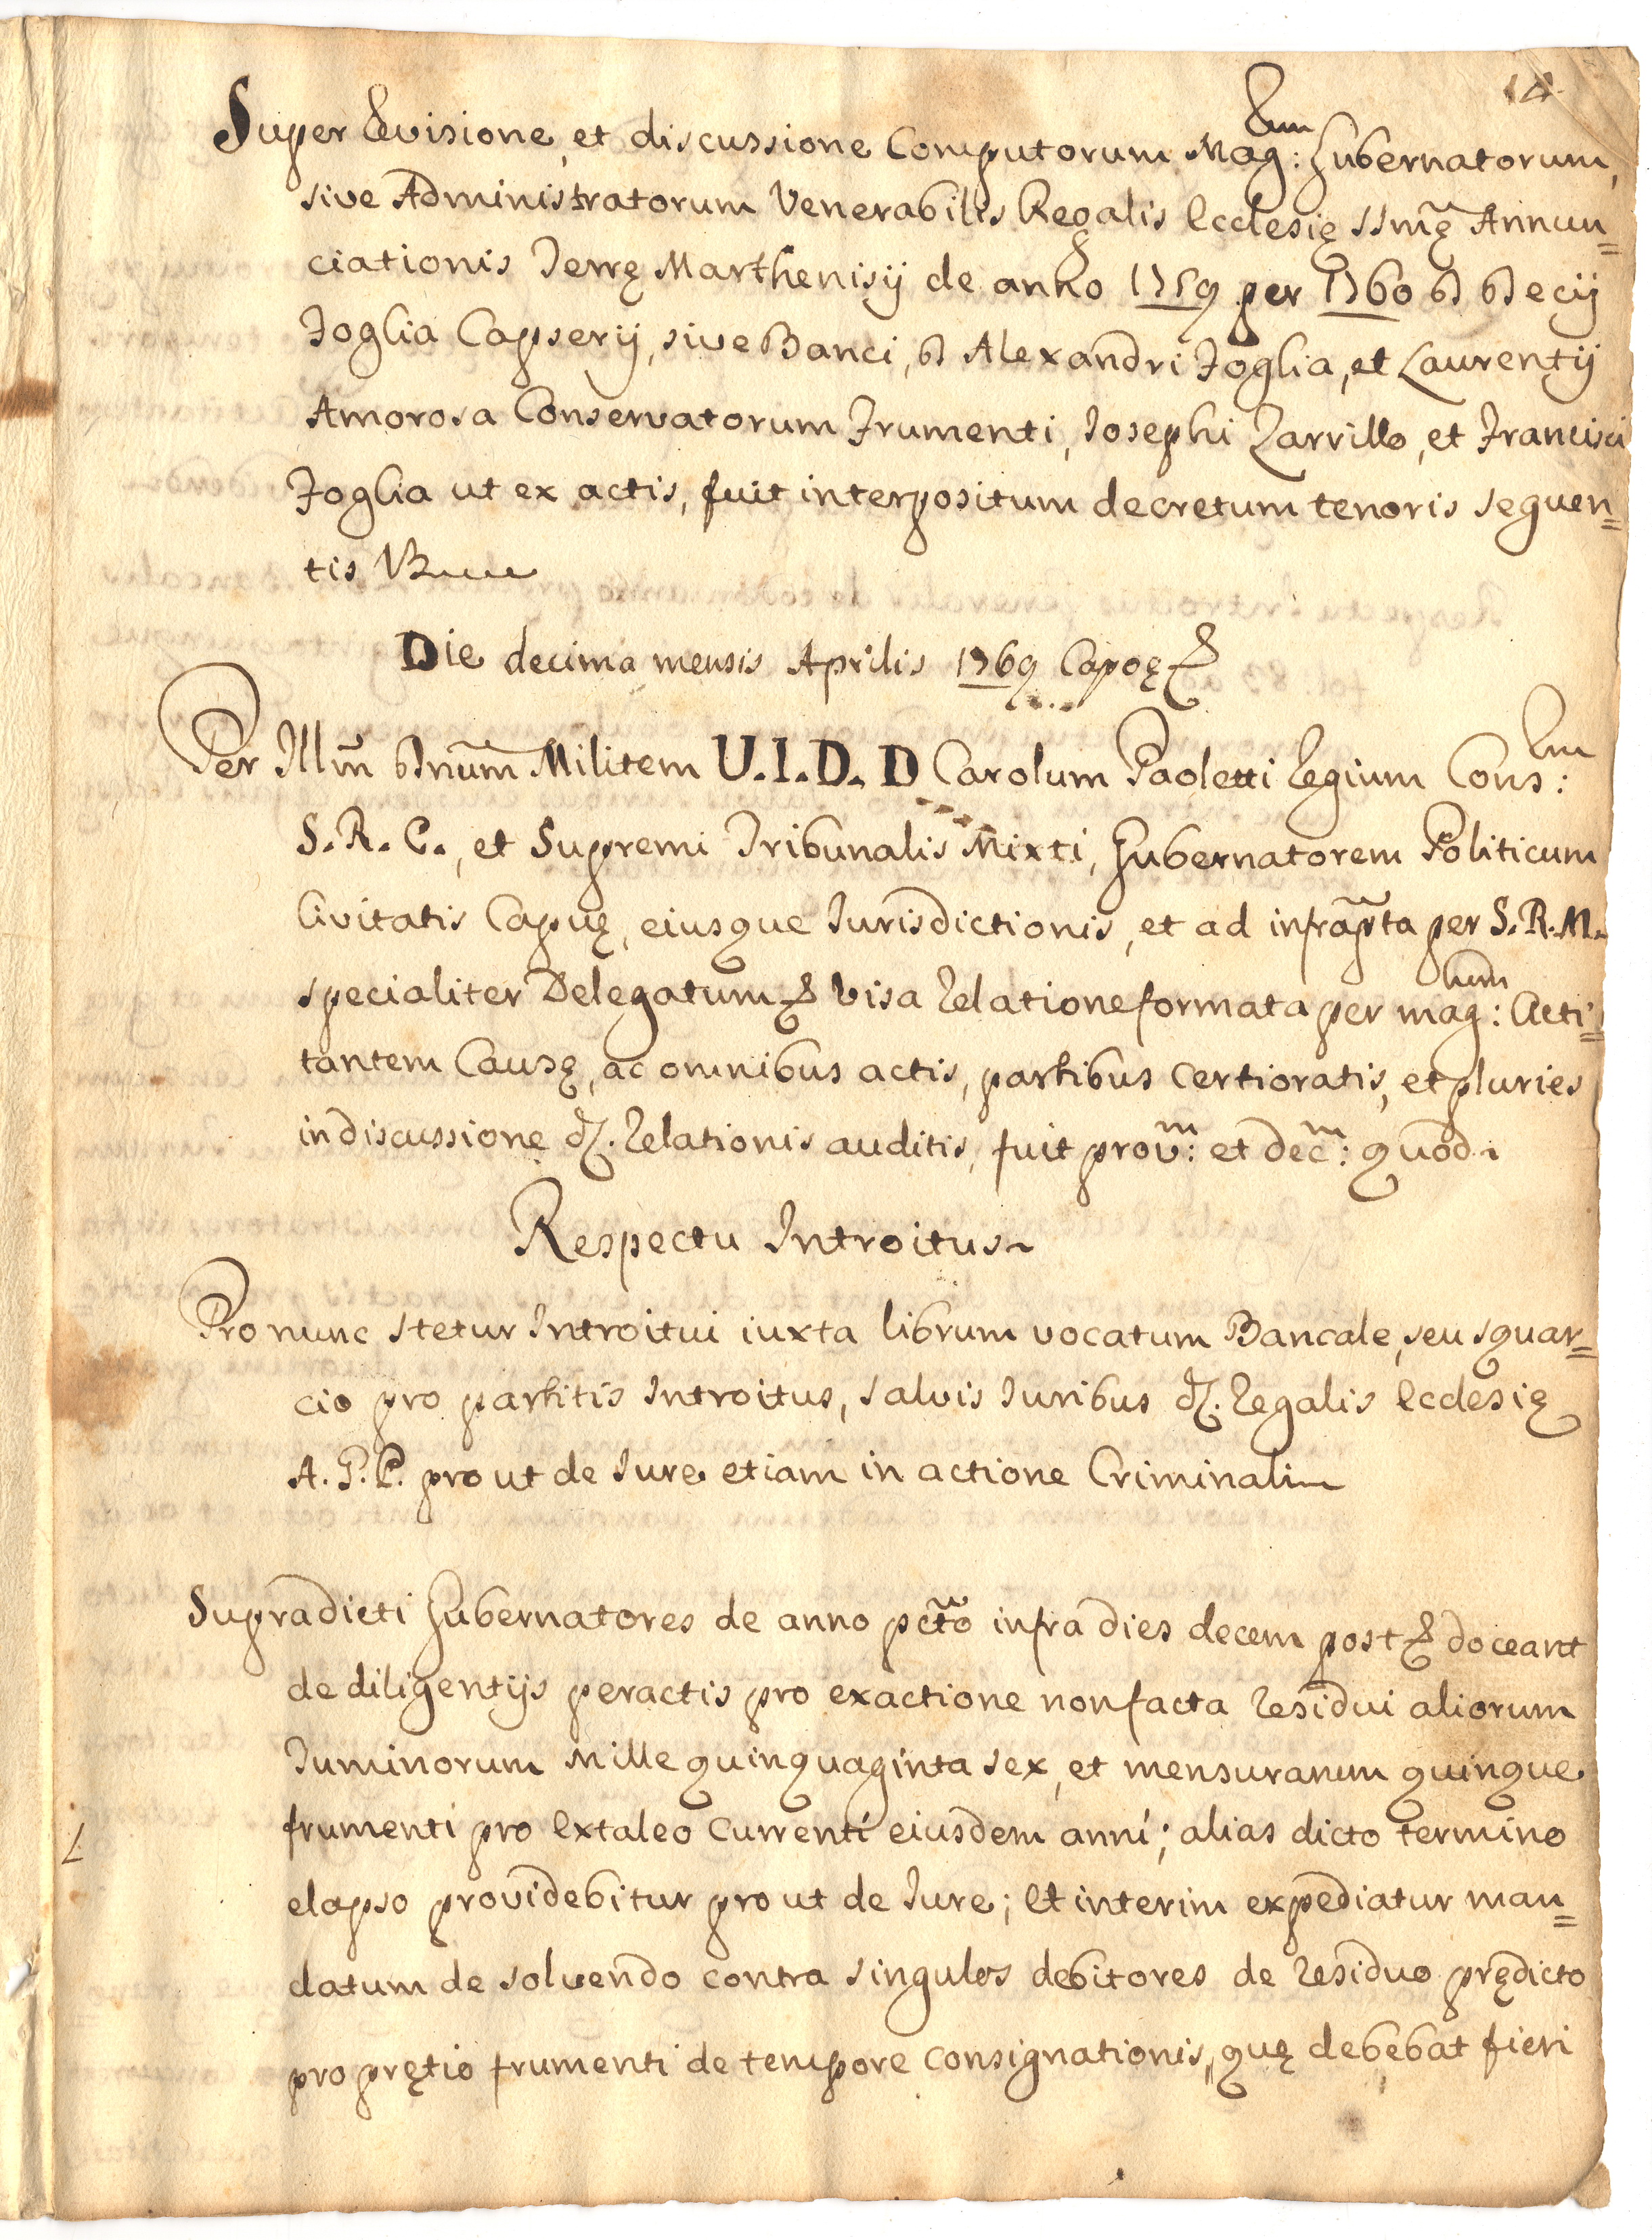 14.
Super Revisione, et discussione Computorum Mag:rum Gubernatorum,
sive Administratorum Venerabilis Regalis Ecclesię SSmę Annun=
ciationis Terrę Marthenisij de anno 1759 per 1760 D Decij
Foglia Capserij, sive Banci, D Alexandri Foglia, et Laurentij
Amorosa Conservatorum Frumenti, Josephi Zarrillo, et Francisci
Foglia ut ex actis, fuit interpositum decretum tenoris sequen=
tis V
Die decima mensis Aprilis 1769 Capoę
Per Illm Dnum Militem U.I.D. D Carolum Paoletti Regium Cons:rm
S.R.C., et Supremi Tribunalis Mixti, Gubernatorem Politicum
Civitatis Capuę, eiusque Jurisdictionis, et ad infrapta per S.R.M.
specialiter Delegatum & Visa Relatione formata per mag:cum Acti=
tantem Causę, ac omnibus actis, partibus certioratis, et pluries
in discussione d. Relationis auditis, fuit prov:m et dec:m quod
Respectu Introitus
Pro nunc stetur Introitui iuxta librum vocatum Bancale, seu squar=
cio pro partitis Introitus, salvis Juribus d. Regalis Ecclesię
A.G.P. prout de Jure etiam in actione Criminali
Supradicti Gubernatores de anno pcto infra dies decem post & doceant
de diligentijs peractis pro exactione non facta Residui aliorum
Tuminorum Mille quinquaginta sex, et mensurarum quinque
frumenti pro Extaleo Currenti eiusdem anni; alias dicto termino
elapso providebitur prout de Jure; Et interim expediatur man=
datum de solvendo contra singulos debitores de Residuo prędicto
pro prętio frumenti de tempore Consignationis, quę debebat fieri